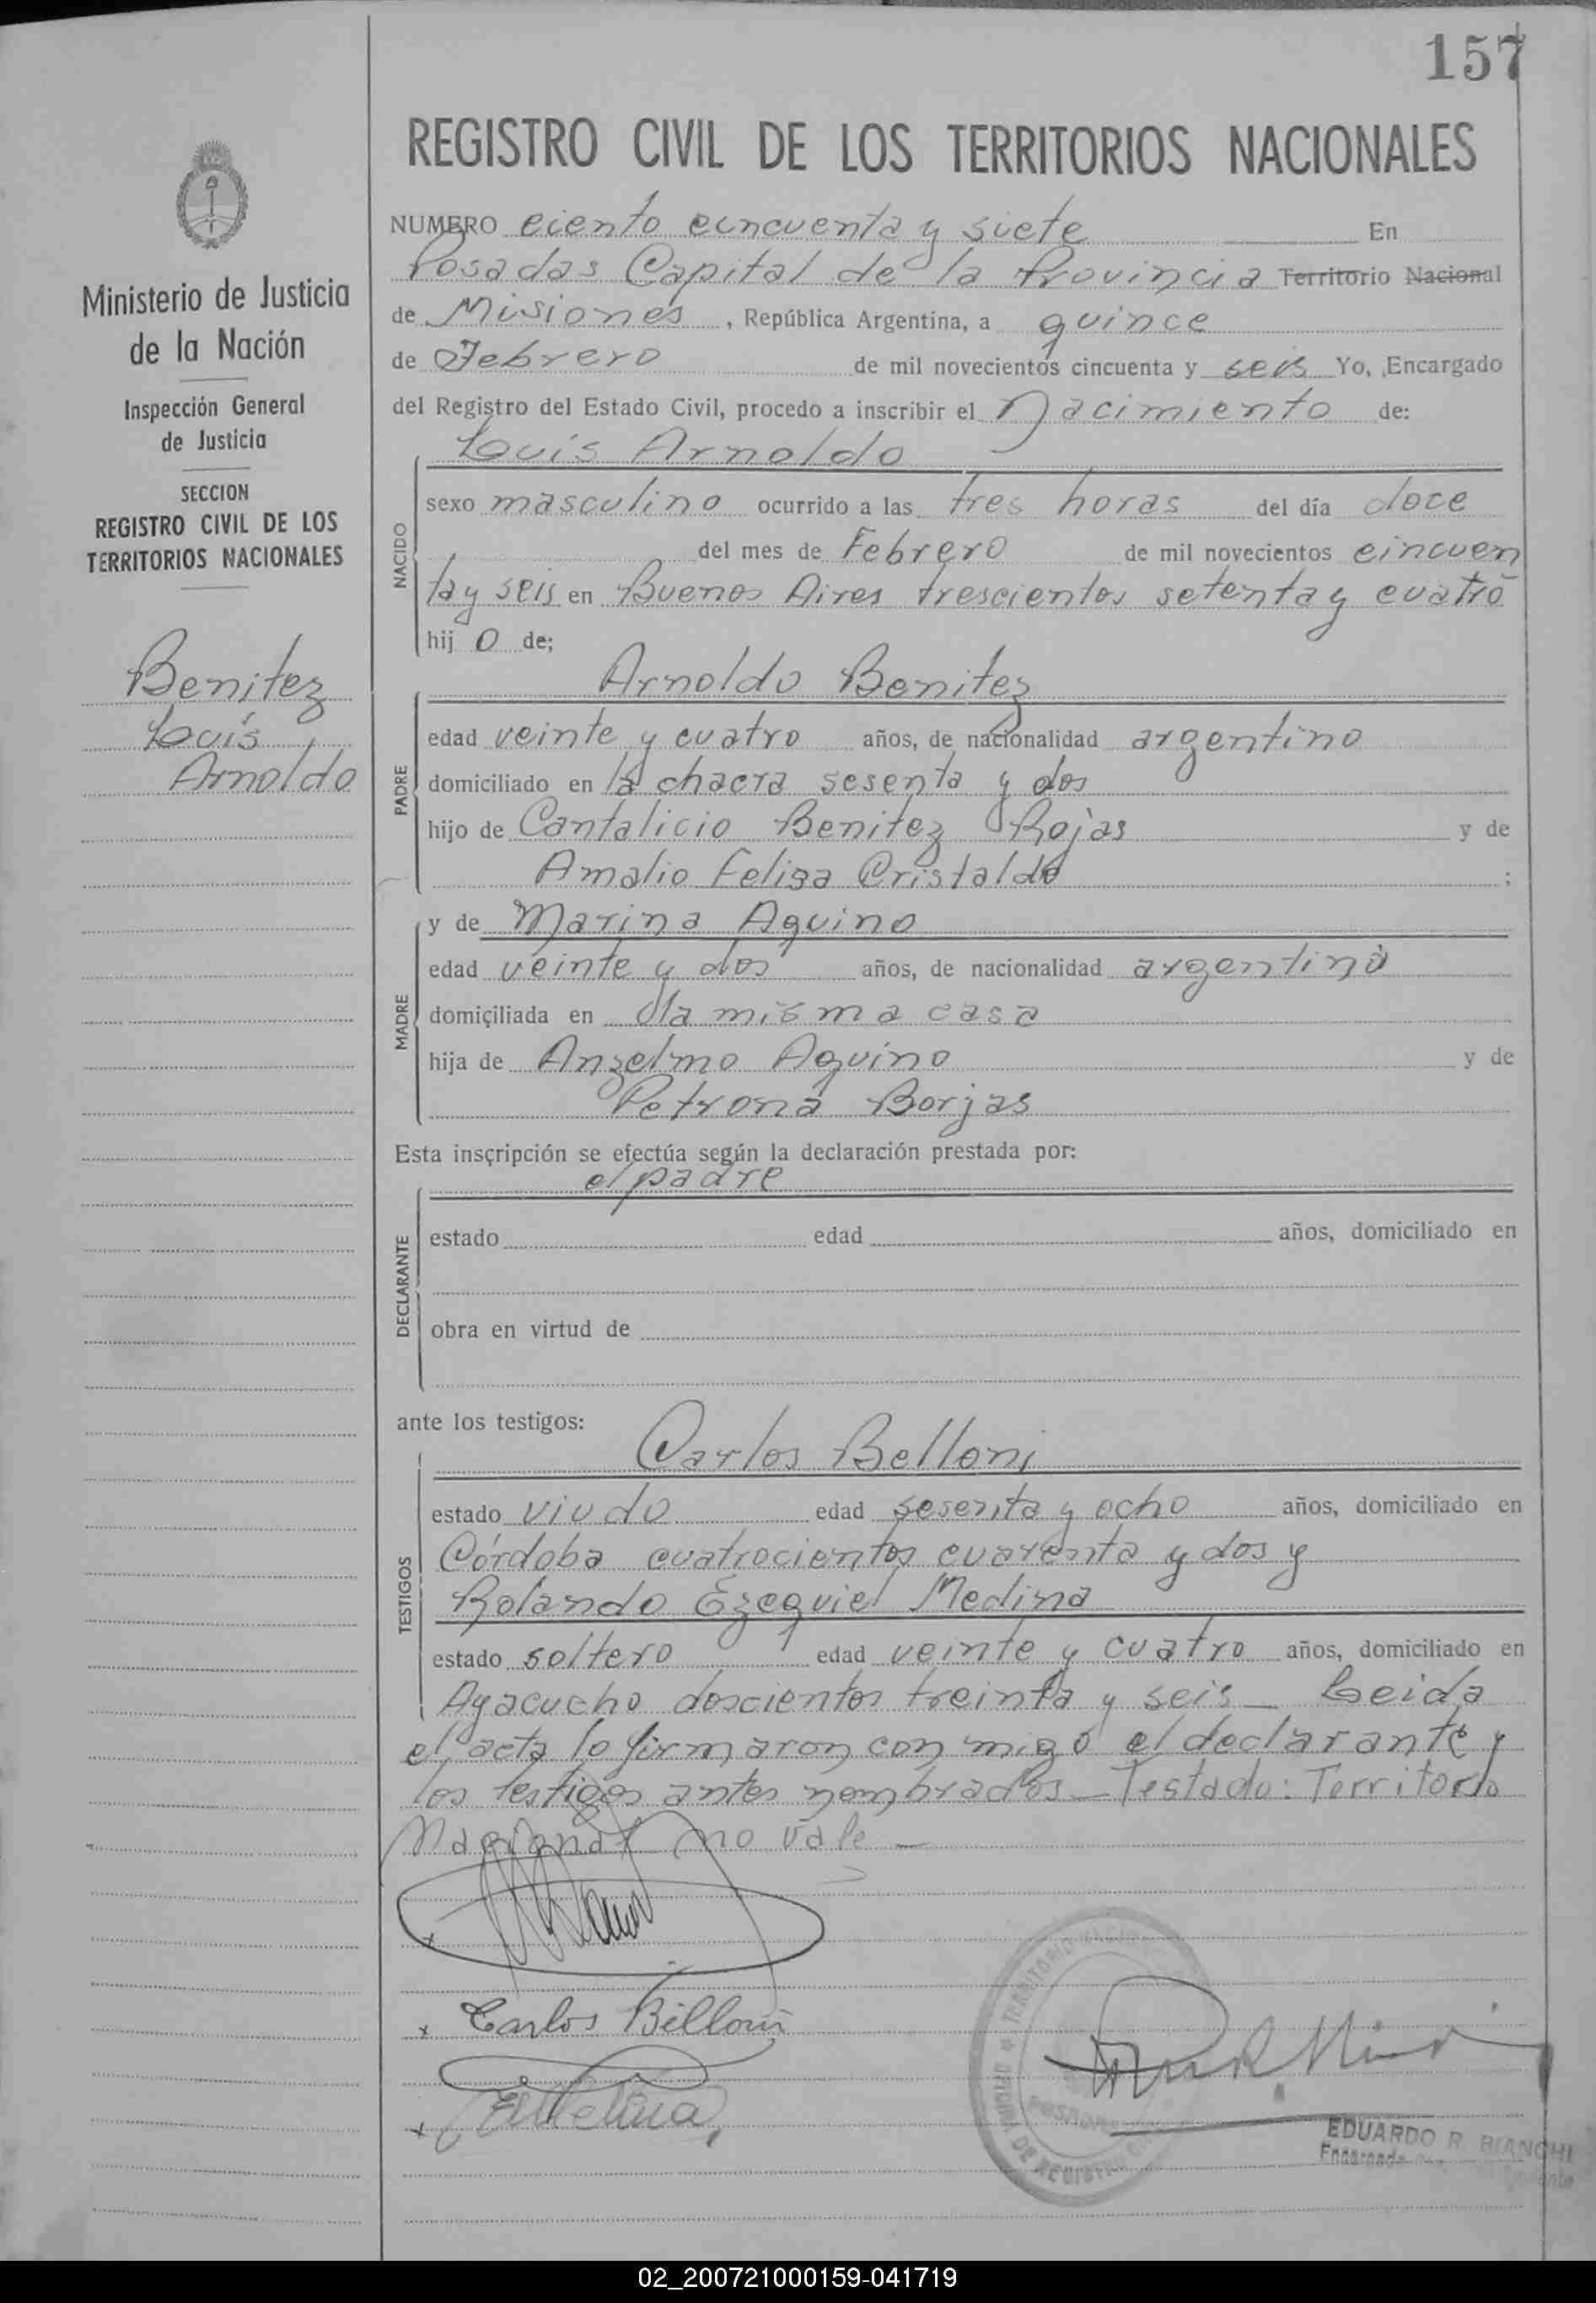 157
REGISTRO CIVIL DE LOS TERRITORIOS NACIONALES
Ministerio de Justicia
de la Nación
Inspección General
de Justicia
SECCION
REGISTRO CIVIL DE LOS
TERRITORIOS NACIONALES
Benitez
Luis
Arnoldo
NUMERO ciento cincuenta y siete En
Posadas Capital de la Provincia Territorio Nacional
de Misiones, República Argentina, a quince
de Febrero de mil novecientos cincuenta y seis Yo, Encargado
del Registro del Estado Civil, procedo a inscribir el Nacimiento de:
Luis Arnoldo
NACIDO
sexo masculino ocurrido a las tres horas del día doce
del mes de Febrero de mil novecientos cincuen
ta y seis en Buenos Aires trescientos setenta y cuatro
hij o de;
Arnoldo Benitez
PADRE
edad veinte y cuatro años, de nacionalidad argentino
domiciliado en la chacra sesenta y dos
hijo de Cantalicio Benitez Rojas y de
Amalio Felisa Cristaldo;
MADRE
y de Marina Aquino
edad veinte y dos años, de nacionalidad argentina
domiciliada en la misma casa
hija de Anselmo Aquino y de
Petrona Borjas
Esta inscripción se efectúa según la declaración prestada por:
el padre
DECLARANTE
estado edad años, domiciliado en
obra en virtud de
ante los testigos:
Carlos Belloni
TESTIGOS
estado viudo edad sesenta y ocho años, domiciliado en
Córdoba cuatrocientos cuarenta y dos y
Rolando Ezequiel Medina
estado soltero edad veinte y cuatro años, domiciliado en
Ayacucho doscientos treinta y seis _ Leida
el acta lo firmaron con migo el declarante y
los testigos antes nombrados _ Testado: Territorio
Nacional no vale _
x
x Carlos Belloni
x
EDUARDO R. BIANCHI
Encargado
02_200721000159-041719